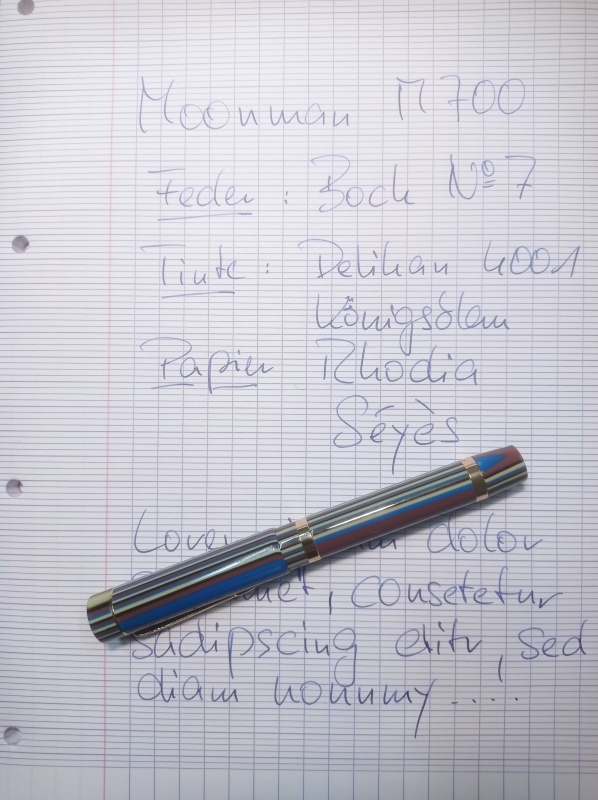 Moonman M700
Feder: Bock Nº 7
Tinte: Pelikan 4001
Königsblau
Papier Rhodia
Séyès
dolor
, consetetur
sadipscing elitr, sed
diam nonumy .....